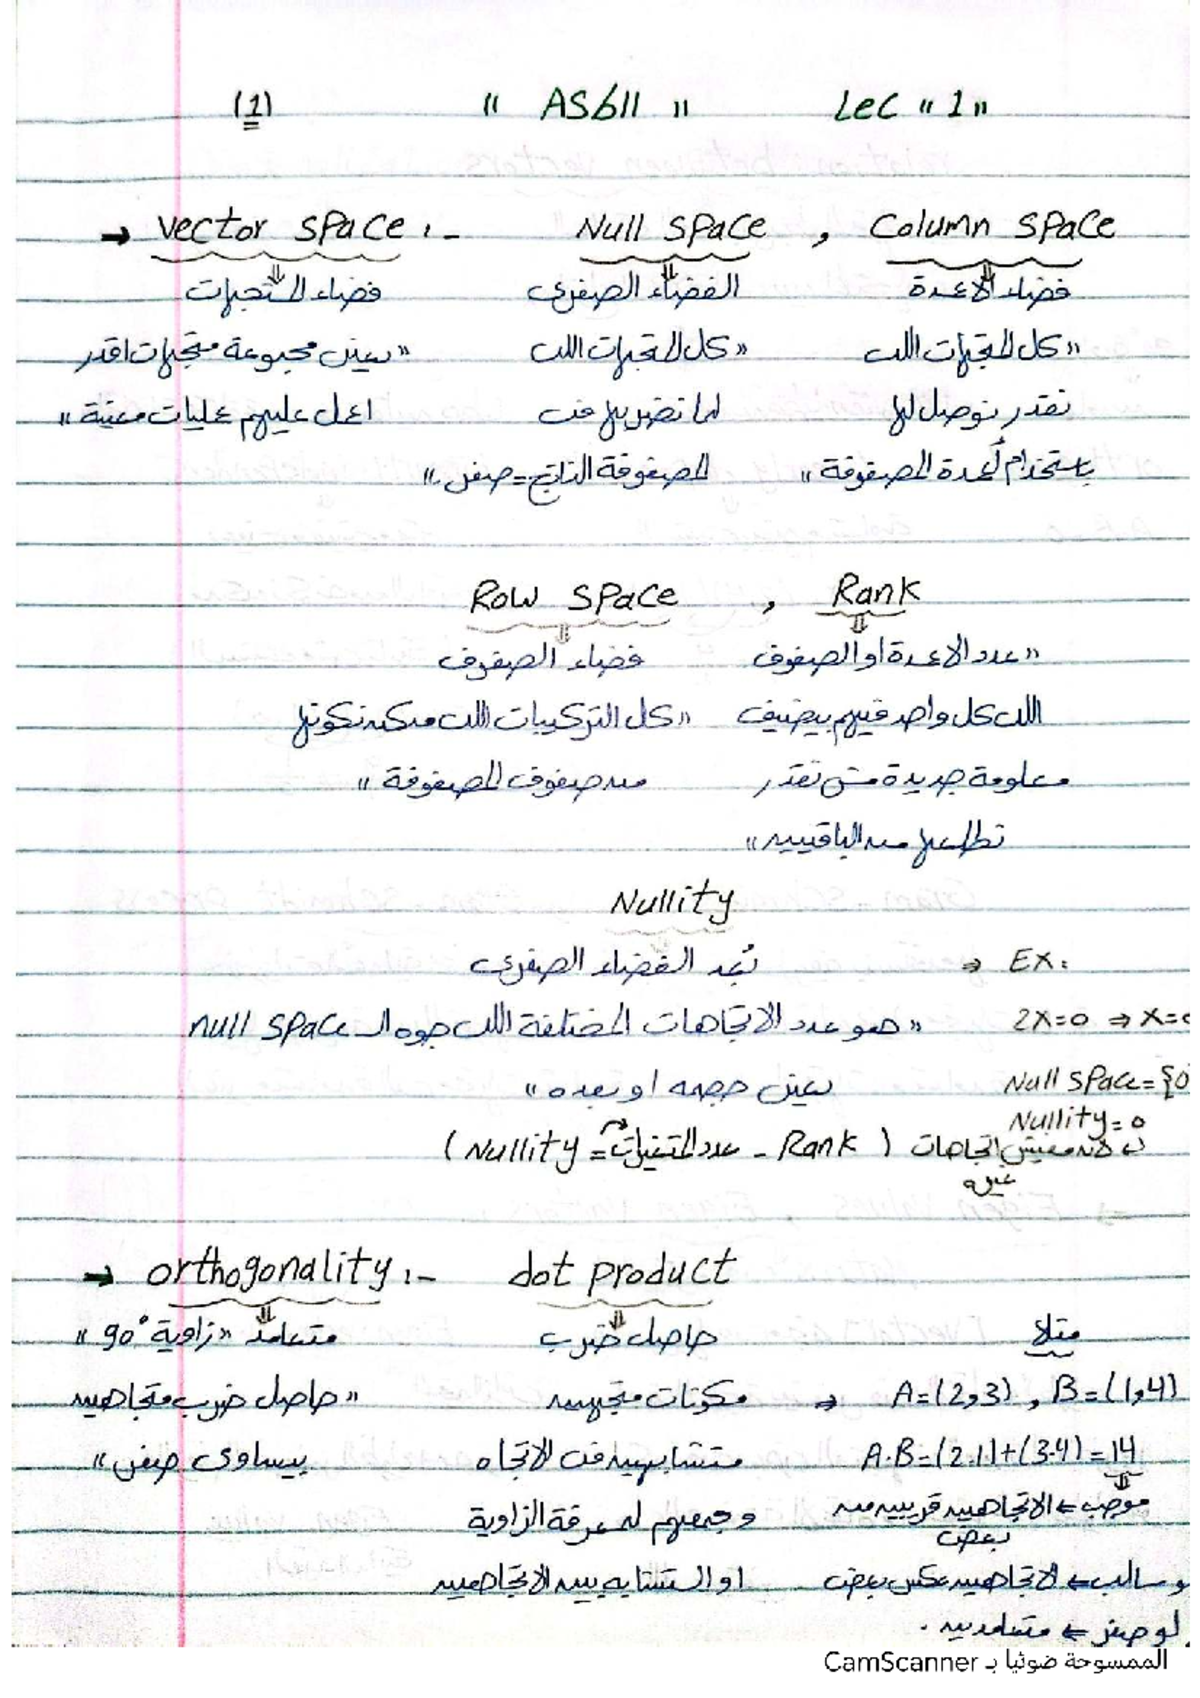 (1) " AS611 " Lec "1"
→ Vector Space :- Null Space , Column Space
فضاء المتجهات الفضاء الصفري فضاء الاعمدة
"يعني مجموعة متجهات اقدر "كل المتجهات اللي "كل المتجهات اللي
اعمل عليهم عمليات معينة" لما نضربها في نقدر نوصل لها
المصفوفة الناتج = صفر." باستخدام أعمدة المصفوفة"
Row Space , Rank
فضاء الصفوف "عدد الاعمدة او الصفوف
"كل التركيبات اللي ممكن نكونها اللي كل واحد فيهم بيضيف
من صفوف المصفوفة" معلومة جديدة مش نقدر
نطلعها من الباقيين"
Nullity
بُعد الفضاء الصفري ⇒ EX:
"هو عدد الاتجاهات المختلفة اللي جوه الـ null space 2X=0 ⇒ X=0
يعني حجمه او بعده" Null Space = {0
Nullity = 0
(Nullity = عدد المتغيرات - Rank) لانه مفيش اتجاهات
فيه
→ orthogonality :- dot product
متعامد "زاوية 90°" حاصل ضرب مثلا
"حاصل ضرب متجاهين مكونات متجهين ⇒ A=(2,3) , B=(1,4)
بيساوى صفر" متشابهين في الاتجاه A.B=(2.1)+(3.4)=14
وجمعهم لمعرفة الزاوية موجب ← الاتجاهين قريبين من
بعض
او التشابه بين الاتجاهين وسالب ← الاتجاهين عكس بعض
لو صفر ← متعامدين .
الممسوحة ضوئيا بـ CamScanner